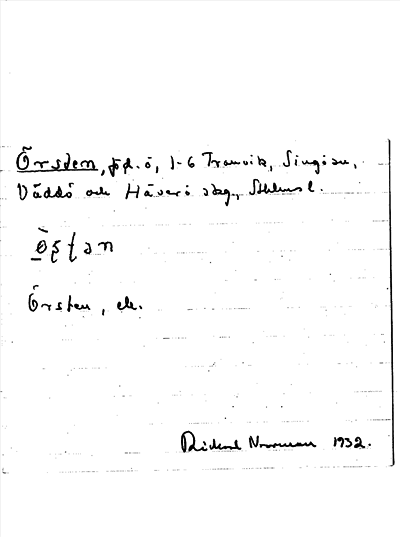 Örsten, föd. ö, 1-6 Tranvik, Singö sn,
Väddö och Häverö skg, Sthlms l.
Örsten, ek.
Rickard Norrman 1932.